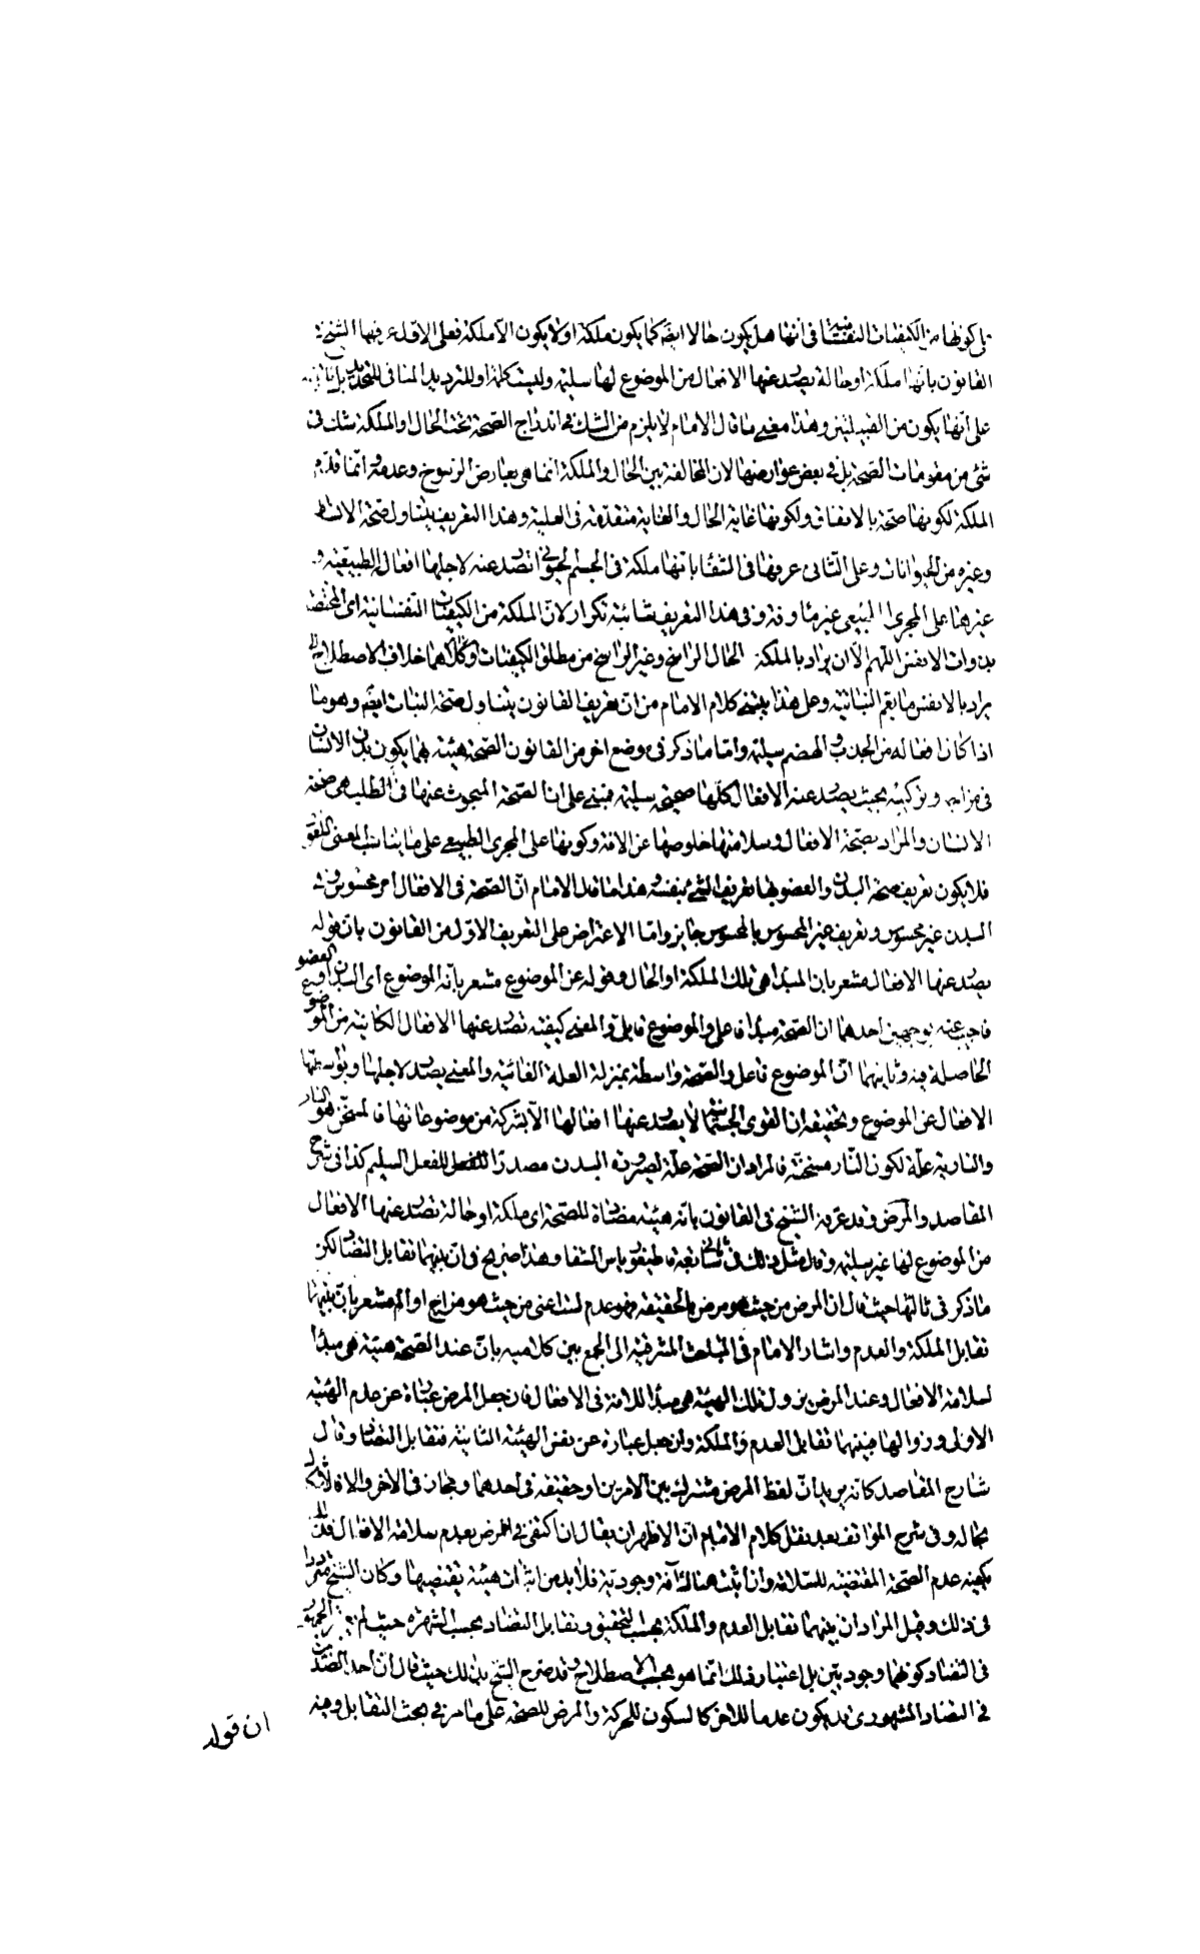 كونها من الكيفيات النفسانية في انها هل يكون حالا ايضا كما يكون ملكة او لا يكون الا ملكة فعلى الاول عرفها الشيخ في
القانون بانها ملكة او حالة يصدر عنها الافعال من الموضوع لها سليمة وليست كلمة او للترديد المنافي للتحديد بل
على انها يكون من القبيلتين وهذا معنى ما قال الامام لا يلزم من الشك في اندراج الصحة تحت الحال او الملكة شك في
شئ من مقومات الصحة بل في بعض عوارضها لان المخالفة بين الحال والملكة انما هي بعارض الرسوخ وعدمه وانما قدم
الملكة لكونها صحة بالاتفاق ولكونها غاية الحال والغاية متقدمة في العلية وهذا التعريف يتناول صحة الانسان
وغيره من الحيوانات وعلى الثاني عرفها في الشفا بانها ملكة في الجسم الحيواني تصدر عنه لاجلها افعاله الطبيعية و
غيرها على المجرى الطبيعي غير ماوفة وفي هذا التعريف شائبة تكرار لان الملكة من الكيفيات النفسانية اى المختصة
بذوات الانفس اللهم الا ان يراد بالملكة الحال الراسخ وغير الراسخ من مطلق الكيفيات وكلاهما خلاف الاصطلاح او
يراد بالانفس ما يعم النباتية وعلى هذا يبتنى كلام الامام من ان تعريف القانون يتناول صحة النبات ايضا وهو ما
اذا كان افعاله من الجذب و الهضم سليمة واما ما ذكر في موضع اخر من القانون الصحة هيئة بها يكون بدن الانسان
في مزاجه وتركيبه بحيث يصدر عنه الافعال كلها صحيحة سليمة فمبنى على ان الصحة المبحوث عنها في الطب هي صحة
الانسان والمراد بصحة الافعال وسلامتها خلوصها عن الافة وكونها على المجرى الطبيعي على ما يناسب المعنى اللغوى
فلا يكون تعريف صحة البدن والعضو بها تعريف الشئ بنفسه وهذا ما قال الامام ان الصحة في الافعال امر محسوس وفي
البدن غير محسوس وتعريف غير المحسوس بالمحسوس جايز واما الاعتراض على التعريف الاول من القانون بان قوله
يصدر عنها الافعال مشعر بان المبدا هي تلك الملكة او الحال وقوله عن الموضوع مشعر بانه الموضوع اى البدن او العضو
فاجيب عنه بوجهين احدهما ان الصحة مبدا فاعلي والموضوع قابل والمعنى كيفية تصدر عنها الافعال الكائنة من الموضوع
الحاصلة فيه وثانيهما ان الموضوع فاعل والصحة واسطة بمنزلة العلة الغائية والمعنى يصدر لاجلها وبواسطتها
الافعال عن الموضوع وتحقيقه ان القوى الجسمانية لا يصدر عنها افعالها الا بشركة من موضوعاتها فالمسخن هو النار
والنارية علة لكون النار مسخنة فالمراد ان الصحة علة لصيرورة البدن مصدرا للفعل السليم كذا في شرح
المقاصد والمرض وقد عرفه الشيخ في القانون بانه هيئة مضادة للصحة اى ملكة او حالة تصدر عنها الافعال
من الموضوع لها غير سليمة وقال مثل ذلك في ثاني سابعة قاطيغورياس الشفا وهذا صريح في ان بينهما تقابل التضاد لكن
ما ذكر في ثالثها حيث قال ان المرض من حيث هو مرض بالحقيقة فهو عدم لست اعنى من حيث هو مزاج او الم مشعر بان بينهما
تقابل الملكة والعدم واشار الامام في المباحث المشرقية الى الجمع بين كلاميه بان عند الصحة هيئة هي مبدا
لسلامة الافعال وعند المرض يزول تلك الهيئة هي مبدا للافة في الافعال فان جعل المرض عبارة عن عدم الهيئة
الاولى وزوالها فبينهما تقابل العدم والملكة وان جعل عبارة عن نفس الهيئة الثانية فتقابل التضاد وقال
شارح المقاصد كانه يريد ان لفظ المرض مشترك بين الامرين او حقيقة في احدهما ومجاز في الاخر والا فالاشكال
بحاله وفي شرح المواقف بعد نقل كلام الامام ان الاظهر ان يقال ان اكتفى في المرض بعدم سلامة الافعال فذلك
يكفيه عدم الصحة المقتضية للسلامة وان اثبت هناك آفة وجودية فلا بد من اثبات هيئة تقتضيها وكان الشيخ متردد
في ذلك وقيل المراد ان بينهما تقابل العدم والملكة بحسب التحقيق وتقابل التضاد بحسب الشهرة حيث لم يعتبر الجمهور
في التضاد كونهما وجوديتين بل اعتبار ذلك انما هو بحسب الاصطلاح وقد صرح الشيخ بذلك حيث قال ان احد الضدين
في التضاد المشهورى قد يكون عدما للاخر كالسكون للحركة والمرض للصحة على ما مر في بحث التقابل وفيه
ان قوله